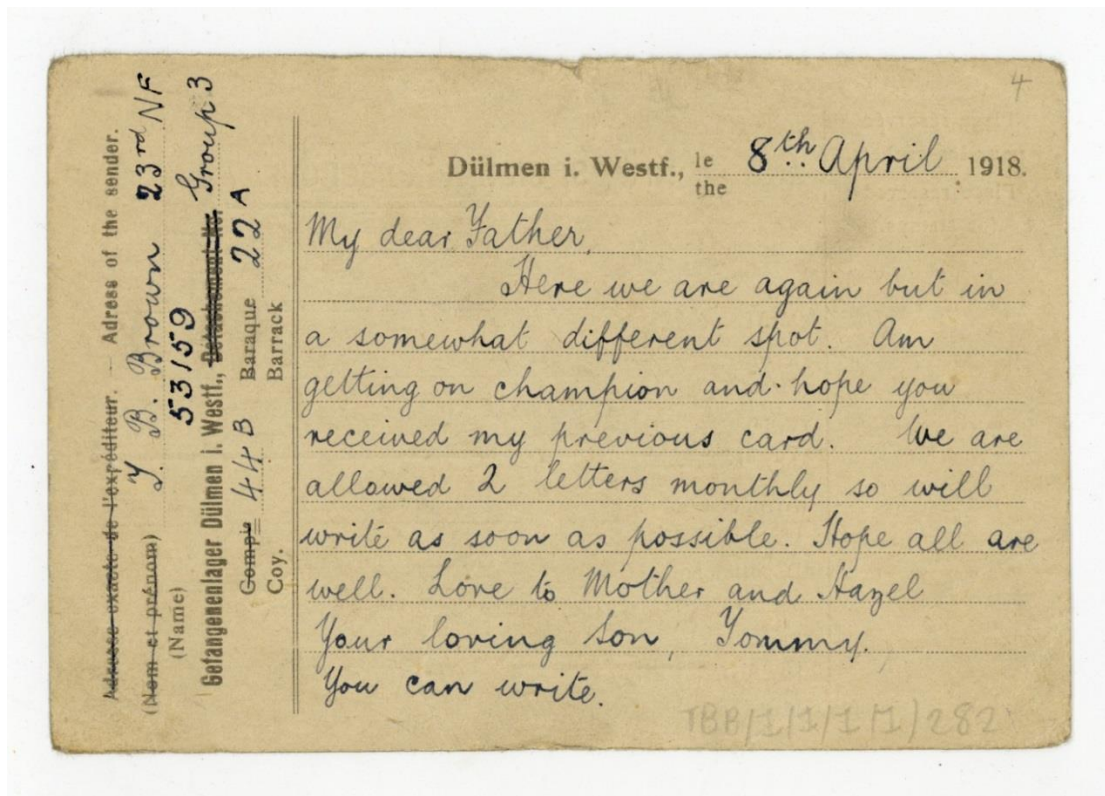 4
Adresse exacte de l'expréditeur. – Adress of the sender.
(Nom et prénom) T. B. Brown 23rd NF
(Name)
53159
Gefangenenlager Dülmen i. Westf., Détachement No. Group 3
Comp'e 44 B Baraque 22 A
Coy. Barrack
Dülmen i. Westf., le 8th April 1918.
the
My dear Father,
Here we are again but in
a somewhat different spot. Am
getting on champion and hope you
received my previous card. We are
allowed 2 letters monthly so will
write as soon as possible. Hope all are
well. Love to Mother and Hazel
Your loving Son, Tommy.
You can write.
TBB/1/1/1/1/282